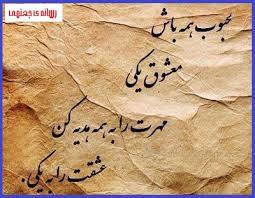 رسانه ی جعفریه
محبوب همه باش
معشوق یکی
مهرت را به همه هدیه کن
عشقت را به یکی.